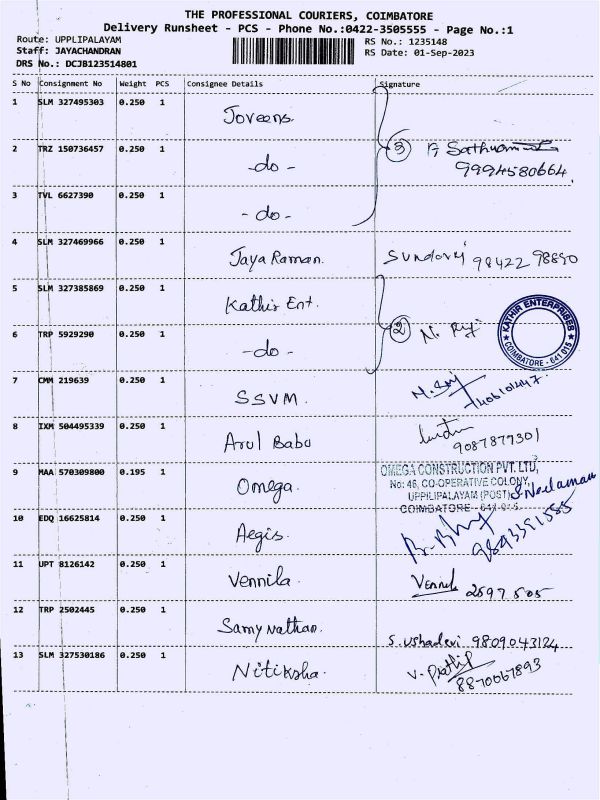 THE PROFESSIONAL COURIERS, COIMBATORE
Delivery Runsheet - PCS - Phone No.:0422-3505555 - Page No.:1
Route: UPPLIPALAYAM
RS No.: 1235148
Staff: JAYACHANDRAN
RS Date: 01-Sep-2023
DRS No.: DCJB123514801
S No Consignment No Weight PCS Consignee Details Signature
1 SLM 327495303 0.250 1 Joveens
2 TRZ 150736457 0.250 1 -do- 3
9994580664.
3 TVL 6627390 0.250 1 -do-
4 SLM 327469966 0.250 1 Jaya Raman.
5 SLM 327385869 0.250 1 Kathir Ent.
KATHIR ENTERPRISES
COIMBATORE - 641 015
6 TRP 5929290 0.250 1 -do- 2
7 CMM 219639 0.250 1 SSVM.
8 IXM 504495339 0.250 1 Arul Babu
9087877301
9 MAA 570309800 0.195 1 Omega.
OMEGA CONSTRUCTION PVT. LTD,
No: 46, CO-OPERATIVE COLONY,
UPPILIPALAYAM (POST)
COIMBATORE - 641 015.
10 EDQ 16625814 0.250 1 Aegis.
11 UPT 8126142 0.250 1 Vennila.
12 TRP 2502445 0.250 1 Samy Nathan.
S. Ushadevi 9809043124
13 SLM 327530186 0.250 1 Nitiksha.
8870067893